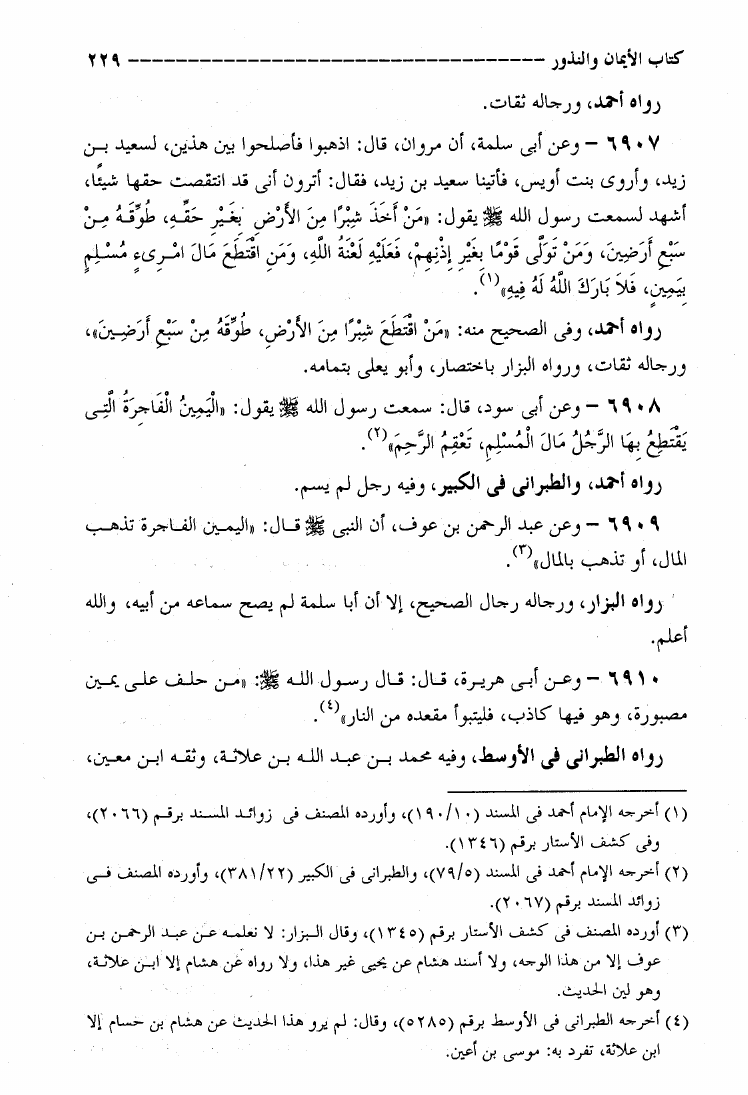 كتاب الأيمان والنذور ----------------------------------- ٢٢٩
رواه أحمد، ورجاله ثقات.
٦٩٠٧ – وعن أبى سلمة، أن مروان، قال: اذهبوا فأصلحوا بين هذين، لسعيد بن
زيد، وأروى بنت أويس، فأتينا سعيد بن زيد، فقال: أترون أنى قد انتقصت حقها شيئًا،
أشهد لسمعت رسول الله ﷺ يقول: «مَنْ أَخَذَ شِبْرًا مِنَ الأَرْضِ بِغَيْرِ حَقِّهِ، طُوِّقَهُ مِنْ
سَبْعِ أَرَضِينَ، وَمَنْ تَوَلَّى قَوْمًا بِغَيْرِ إِذْنِهِمْ، فَعَلَيْهِ لَعْنَةُ اللَّهِ، وَمَنِ اقْتَطَعَ مَالَ امْرِىءٍ مُسْلِمٍ
بِيَمِينٍ، فَلاَ بَارَكَ اللَّهُ لَهُ فِيهِ»(١).
رواه أحمد، وفى الصحيح منه: «مَنْ اقْتَطَعَ شِبْرًا مِنَ الأَرْضِ، طُوِّقَهُ مِنْ سَبْعِ أَرَضِينَ»،
ورجاله ثقات، ورواه البزار باختصار، وأبو يعلى بتمامه.
٦٩٠٨ – وعن أبى سود، قال: سمعت رسول الله ﷺ يقول: «الْيَمِينُ الْفَاجِرَةُ الَّتِى
يَقْتَطِعُ بِهَا الرَّجُلُ مَالَ الْمُسْلِمِ، تَعْقِمُ الرَّحِمَ»(٢).
رواه أحمد، والطبرانى فى الكبير، وفيه رجل لم يسم.
٦٩٠٩ – وعن عبد الرحمن بن عوف، أن النبى ﷺ قال: «اليمين الفاجرة تذهب
المال، أو تذهب بالمال»(٣).
رواه البزار، ورجاله رجال الصحيح، إلا أن أبا سلمة لم يصح سماعه من أبيه، والله
أعلم.
٦٩١٠ – وعن أبى هريرة، قال: قال رسول الله ﷺ: «من حلف على يمين
مصبورة، وهو فيها كاذب، فليتبوأ مقعده من النار»(٤).
رواه الطبرانى فى الأوسط، وفيه محمد بن عبد الله بن علاثة، وثقه ابن معين،
(١) أخرجه الإمام أحمد فى المسند (١٩٠/١٠)، وأورده المصنف فى زوائد المسند برقم (٢٠٦٦)،
وفى كشف الأستار برقم (١٣٤٦).
(٢) أخرجه الإمام أحمد فى المسند (٧٩/٥)، والطبرانى فى الكبير (٣٨١/٢٢)، وأورده المصنف فى
زوائد المسند برقم (٢٠٦٧).
(٣) أورده المصنف فى كشف الأستار برقم (١٣٤٥)، وقال البزار: لا نعلمه عن عبد الرحمن بن
عوف إلا من هذا الوجه، ولا أسند هشام عن يحيى غير هذا، ولا رواه عن هشام إلا ابن علاثة،
وهو لين الحديث.
(٤) أخرجه الطبرانى فى الأوسط برقم (٥٢٨٥)، وقال: لم يرو هذا الحديث عن هشام بن حسام إلا
ابن علاثة، تفرد به: موسى بن أعين.